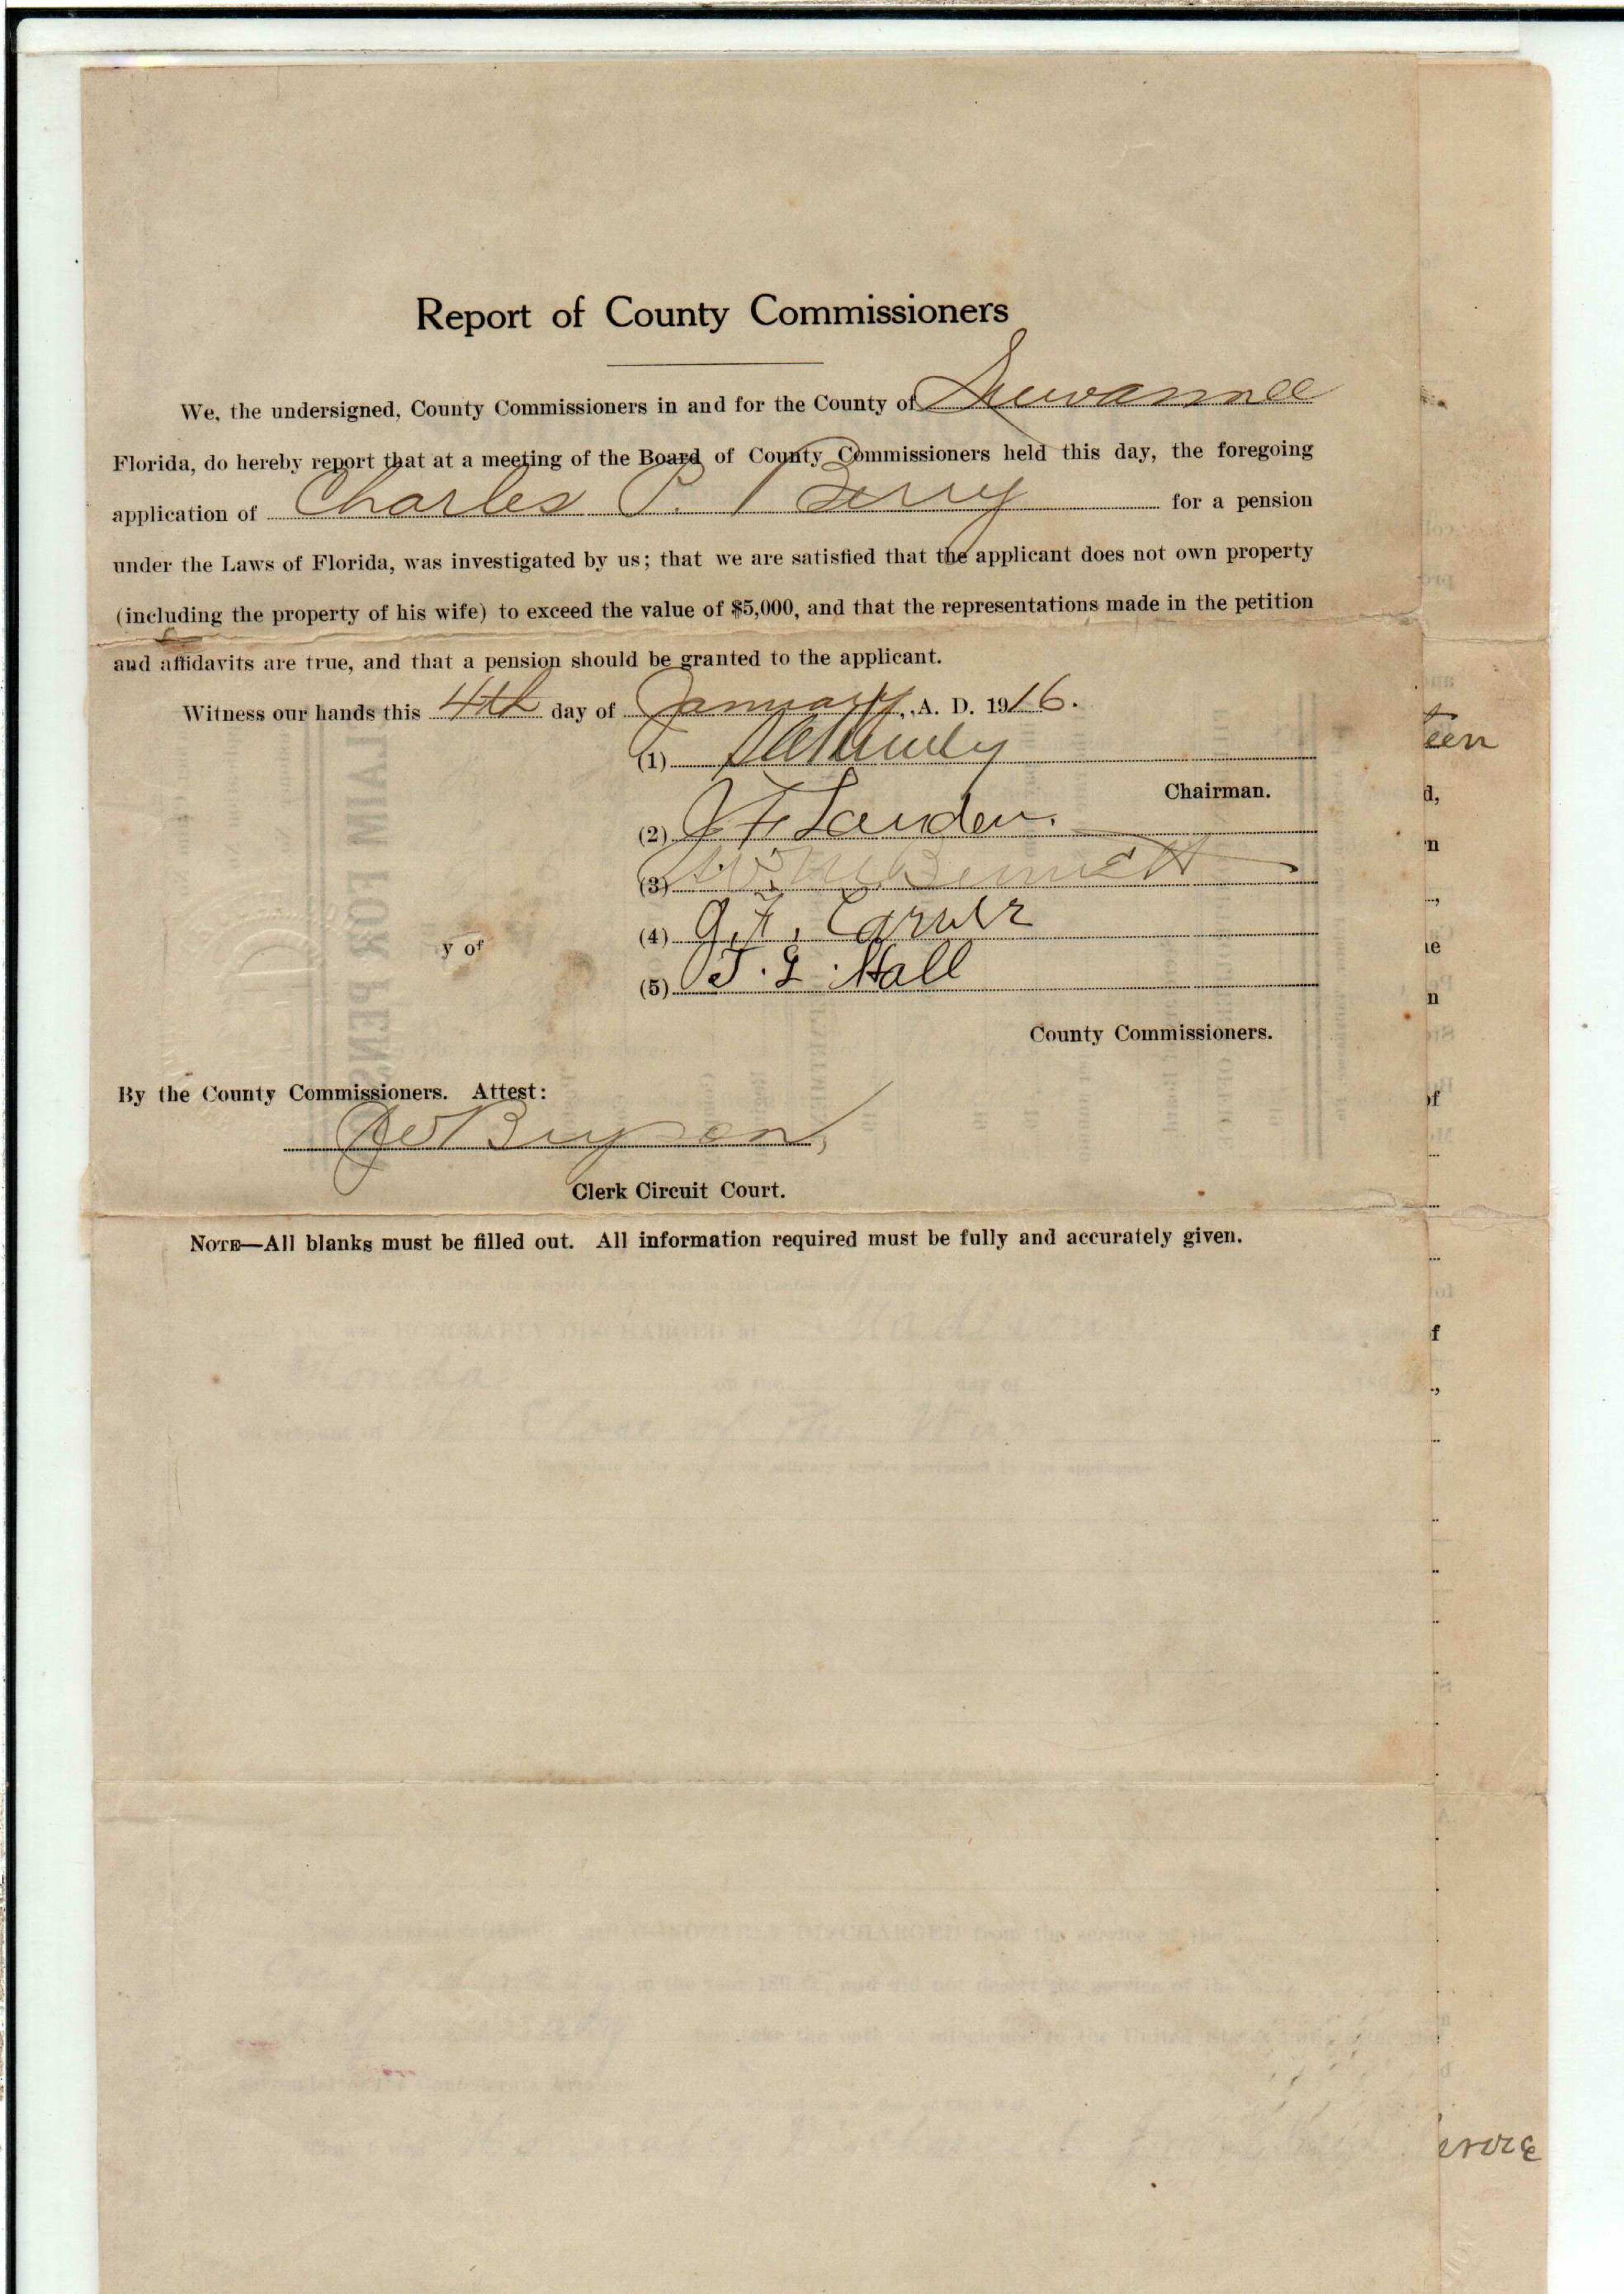 Report of County Commissioners
We, the undersigned, County Commissioners in and for the County of Suwannee
Florida, do hereby report that at a meeting of the Board of County Commissioners held this day, the foregoing
application of Charles P. Berry for a pension
under the Laws of Florida, was investigated by us; that we are satisfied that the applicant does not own property
(including the property of his wife) to exceed the value of $5,000, and that the representations made in the petition
and affidavits are true, and that a pension should be granted to the applicant.
Witness our hands this 4th day of January, A. D. 1916.
(1)
Chairman.
(2) J F Lander.
(3) Bennett
(4) G. A. Carver
(5) T. L. Hall
y of
County Commissioners.
By the County Commissioners. Attest:
J W Bryson,
Clerk Circuit Court.
NOTE—All blanks must be filled out. All information required must be fully and accurately given.